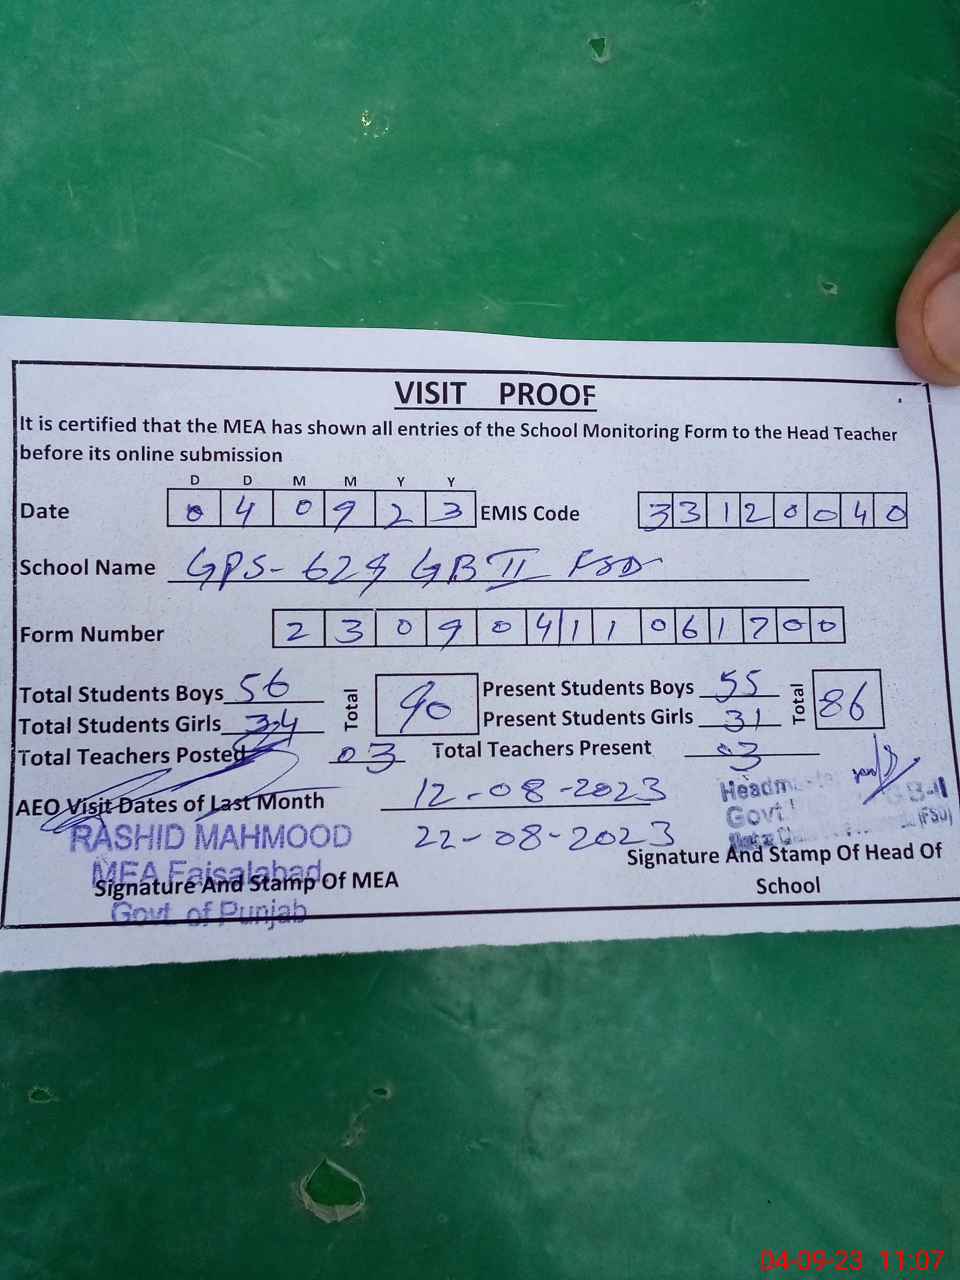 VISIT PROOF
It is certified that the MEA has shown all entries of the School Monitoring Form to the Head Teacher
before its online submission
D D M M Y Y
Date 0 4 0 9 2 3 EMIS Code 3 3 1 2 0 0 4 0
School Name GPS- GB II FSD
Form Number 2 3 0 9 0 4 1 1 0 6 1 7 0 0
Total Students Boys 56 Total 90 Present Students Boys 55 Total 86
Total Students Girls 34 Present Students Girls 31
Total Teachers Posted 03 Total Teachers Present 03
AEO Visit Dates of Last Month 12-08-2023
22-08-2023
RASHID MAHMOOD
MEA Faisalabad
Govt of Punjab
Signature And Stamp Of MEA
Govt
(FSD)
Signature And Stamp Of Head Of
School
04-09-23 11:07